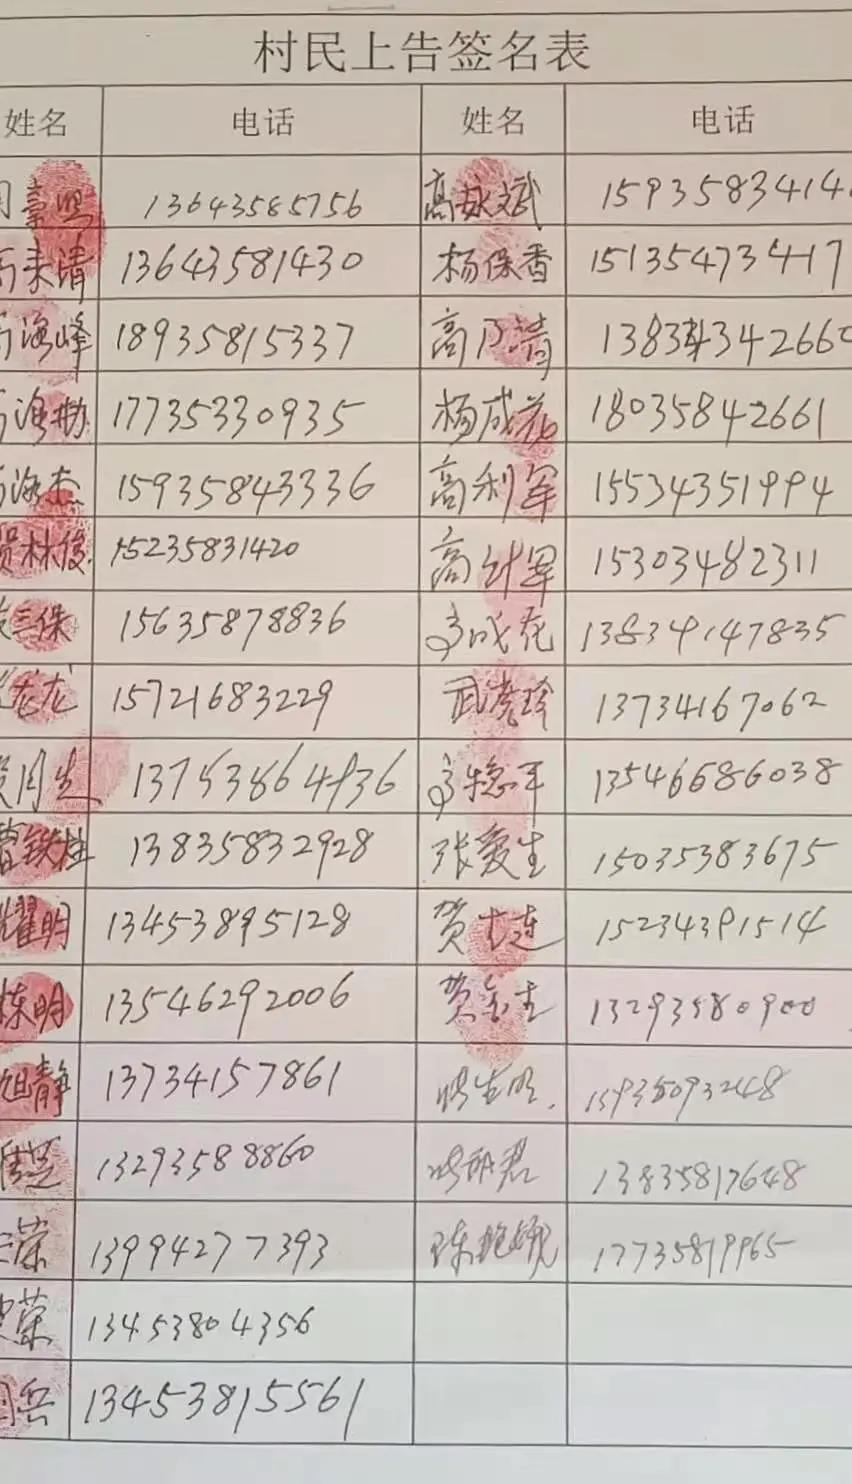 村民上告签名表
姓名 电话 姓名 电话
13643585756 高 斌 1593583414
来清 13643581430 杨保香 15135473417
海峰 18935815337 高乃清
海勤 17735330935 杨成花 18035842661
海杰 15935843336 高利军 15534351994
贺林俊 15235831420 高计军 15303482311
三保 15635878836 高成花 13834147835
龙龙 15721683229 武 珍 13734167062
闫生 13753864936 高 平 13546686038
曹铁柱 13835832928 张爱生 15035383675
耀明 13453895128 贺 连 15234391514
栋明 13546292006 贺金生 13293580900
旭静 13734157861
芝 13293588860 13835817648
荣 13994277393 陈 17735819965
荣 13453804356
兵 13453815561